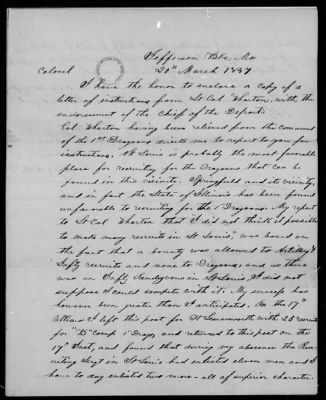 Jefferson Bks, Mo
20th March 1837
Colonel
I have the honor to enclose a copy of a
letter of instructions from Lt Col Wharton, with the
endorsement of the Chief of the Dept:
Col. Wharton having been relieved from the command
of the 1st Dragoons directs me to report to you for
instructions. St Louis is probably the most favorable
place for recruiting for the Dragoons that can be
found in this vicinity. Springfield and its vicinity,
and in fact the State of Illinois has been found
unfavorable to recruiting for the 1st Dragoons. My report
to Lt Col Wharton that I did not think it possible
to make many recruits in St Louis, was based on
the fact that a bounty was allowed to Artillery &
Infty recruits and none to Dragoons, and as there
was an Infty Rendezvous in St Louis, I did not
suppose I could compete with it. My success has
however been greater than I anticipated. On the 17th
I left this post for Ft Leavenworth with 25 recruits
for "B" Comp 1st Drags and returned to this post on the
17th Inst, and found that during my absence the Recruiting
Sergt in St Louis had enlisted eleven men and I
have to day enlisted two more - all of superior character.